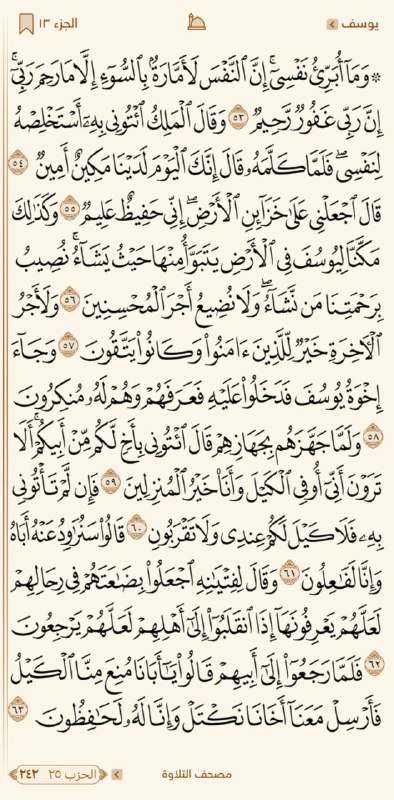 يوسف
الجزء ١٣
۞ وَمَآ أُبَرِّئُ نَفْسِيٓۚ إِنَّ ٱلنَّفْسَ لَأَمَّارَةُۢ بِٱلسُّوٓءِ إِلَّا مَا رَحِمَ رَبِّيٓۚ
إِنَّ رَبِّي غَفُورٞ رَّحِيمٞ ٥٣ وَقَالَ ٱلْمَلِكُ ٱئْتُونِي بِهِۦٓ أَسْتَخْلِصْهُ
لِنَفْسِيۖ فَلَمَّا كَلَّمَهُۥ قَالَ إِنَّكَ ٱلْيَوْمَ لَدَيْنَا مَكِينٌ أَمِينٞ ٥٤
قَالَ ٱجْعَلْنِي عَلَىٰ خَزَآئِنِ ٱلْأَرْضِۖ إِنِّي حَفِيظٌ عَلِيمٞ ٥٥ وَكَذَٰلِكَ
مَكَّنَّا لِيُوسُفَ فِي ٱلْأَرْضِ يَتَبَوَّأُ مِنْهَا حَيْثُ يَشَآءُۚ نُصِيبُ
بِرَحْمَتِنَا مَن نَّشَآءُۖ وَلَا نُضِيعُ أَجْرَ ٱلْمُحْسِنِينَ ٥٦ وَلَأَجْرُ
ٱلْأٓخِرَةِ خَيْرٞ لِّلَّذِينَ ءَامَنُواْ وَكَانُواْ يَتَّقُونَ ٥٧ وَجَآءَ
إِخْوَةُ يُوسُفَ فَدَخَلُواْ عَلَيْهِ فَعَرَفَهُمْ وَهُمْ لَهُۥ مُنكِرُونَ
٥٨ وَلَمَّا جَهَّزَهُم بِجَهَازِهِمْ قَالَ ٱئْتُونِي بِأَخٖ لَّكُم مِّنْ أَبِيكُمْۚ أَلَا
تَرَوْنَ أَنِّيٓ أُوفِي ٱلْكَيْلَ وَأَنَا۠ خَيْرُ ٱلْمُنزِلِينَ ٥٩ فَإِن لَّمْ تَأْتُونِي
بِهِۦ فَلَا كَيْلَ لَكُمْ عِندِي وَلَا تَقْرَبُونِ ٦٠ قَالُواْ سَنُرَٰوِدُ عَنْهُ أَبَاهُ
وَإِنَّا لَفَٰعِلُونَ ٦١ وَقَالَ لِفِتْيَٰنِهِ ٱجْعَلُواْ بِضَٰعَتَهُمْ فِي رِحَالِهِمْ
لَعَلَّهُمْ يَعْرِفُونَهَآ إِذَا ٱنقَلَبُوٓاْ إِلَىٰٓ أَهْلِهِمْ لَعَلَّهُمْ يَرْجِعُونَ
٦٢ فَلَمَّا رَجَعُوٓاْ إِلَىٰٓ أَبِيهِمْ قَالُواْ يَٰٓأَبَانَا مُنِعَ مِنَّا ٱلْكَيْلُ
فَأَرْسِلْ مَعَنَآ أَخَانَا نَكْتَلْ وَإِنَّا لَهُۥ لَحَٰفِظُونَ ٦٣
مصحف التلاوة
الحزب ٢٥
٢٤٢